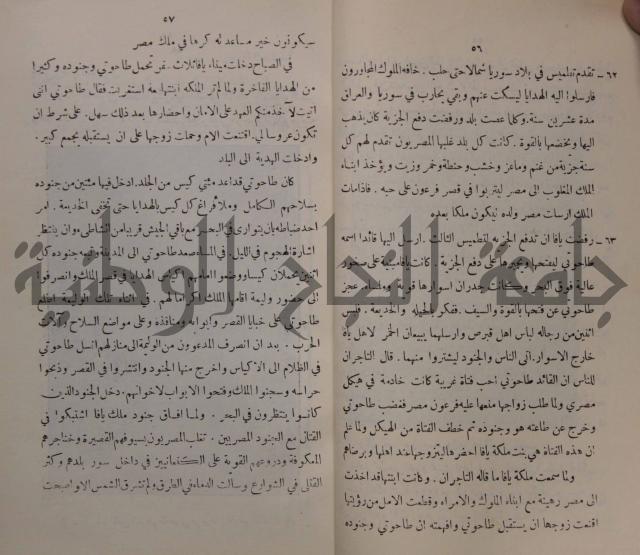 ٥٦
٦٢ – تقدم تحليميس في بلاد سوريا شمالا حتى حلب . خافه الملوك المجاورون
فارسلوا اليه الهدايا ليسكت عنهم وبقي يحارب في سوريا والعراق
مدة عشرين سنة . وكلما عصت بلد ورفضت دفع الجزية كان يذهب
اليها ويخضعها بالقوة . كانت كل بلد غلبها المصريون تقدم لهم كل
سنة جزية من غنم وماعز وخشب وحنطة وخمر وزيت ويؤخذ ابناء
الملك المغلوب الى مصر ليتربوا في قصر فرعون على حبه . فاذا مات
الملك ارسلت مصر ولده ليكون ملكا بعده
٦٣ – رفضت يافا ان تدفع الجزية لتحطميس الثالث . ارسل اليها قائدا اسمه
طاحوتي ليفتحها ويجبرها على دفع الجزية . كانت يافا مبنية على صخور
عالية فوق البحر وكانت جدران اسوارها قوية . ولما عجز
طاحوتي عن فتحها بالقوة والسيف . ففكر بالحيلة والخديعة . فلبس
اثنين من رجاله لباس اهل قبرص وارسلهما يبيعان الخمر لاهل يافا
خارج الاسوار . اتى الناس والجنود ليشتروا منهما . قال التاجران
للناس ان القائد طاحوتي احب فتاة غريبة كانت خادمة في هيكل
مصري ولما طلب زواجها منعها عليه فرعون مصر فغضب طاحوتي
وخرج عن طاعته هو وجنوده ثم خطف الفتاة من الهيكل ولما علم
ان هذه الفتاة هي بنت ملكة يافا احضرها ليتزوجها عند اهلها وبرضاهم
ولما سمعت ملكة يافا ما قاله التاجران . وكانت ابنتها قد اخذت
الى مصر رهينة مع ابناء الملوك والامراء وقطعت الامل من رؤيتها
اقنعت زوجها ان يستقبل طاحوتي وافهمته ان طاحوتي وجنوده
٥٧
سيكونون خير مساعد له كرها في ملك مصر
في الصباح دخلت ميناء يافا ثلاث تحمل طاحوتي وجنوده وكثيرا
من الهدايا الفاخرة ولما لم تر الملكة ابنتها معه استغربت فقال طاحوتي انني
اتيت لآخذ منكم العهد على الامان واحضارها بعد ذلك سهل . على شرط ان
تكون عروسا لي . اقتنعت الام وحملت زوجها على ان يستقبله بجمع كبير .
وادخلت الهدية الى البلد
كان طاحوتي قد اعد مئتي كيس من الجلد . ادخل فيها مئتين من جنوده
بسلاحهم الكامل وملأ فراغ كل كيس بالهدايا حتى تخفى الخديعة . امر
احد ضباطه بان يتوارى في البحر مع باقي الجيش قريبا من الشاطئ وان ينتظر
اشارة الهجوم في الليل . في المساء صعد طاحوتي الى المدينة ومعه جنوده كل
اثنين يحملان كيسا ووضعوا امامهم اكياس الهدايا في قصر الملك وانصرفوا
الى حضور وليمة اقامها الملك اكراما لهم . في اثناء تلك الوليمة اطلع
طاحوتي على خبايا القصر وابوابه ومنافذه وعلى مواضع السلاح وآلات
الحرب . بعد ان انصرف المدعوون من الوليمة الى منازلهم انسل طاحوتي
في الظلام الى الاكياس واخرج منها الجنود وانتشروا في القصر وذبحوا
حراسه وسجنوا الملك وفتحوا الابواب لاخوانهم . دخل الجنود الذين
كانوا ينتظرون في البحر . ولما افاق جنود ملك يافا اشتبكوا في
القتال مع الجنود المصريين . تغلب المصريون بسيوفهم القصيرة وخناجرهم
المعكوفة ودروعهم القوية على الكنعانيين في داخل سور بلدهم وكثر
القتلى في الشوارع وسالت الدماء في الطرق ولم تشرق الشمس الا واصبحت
جامعة النجاح الوطنية